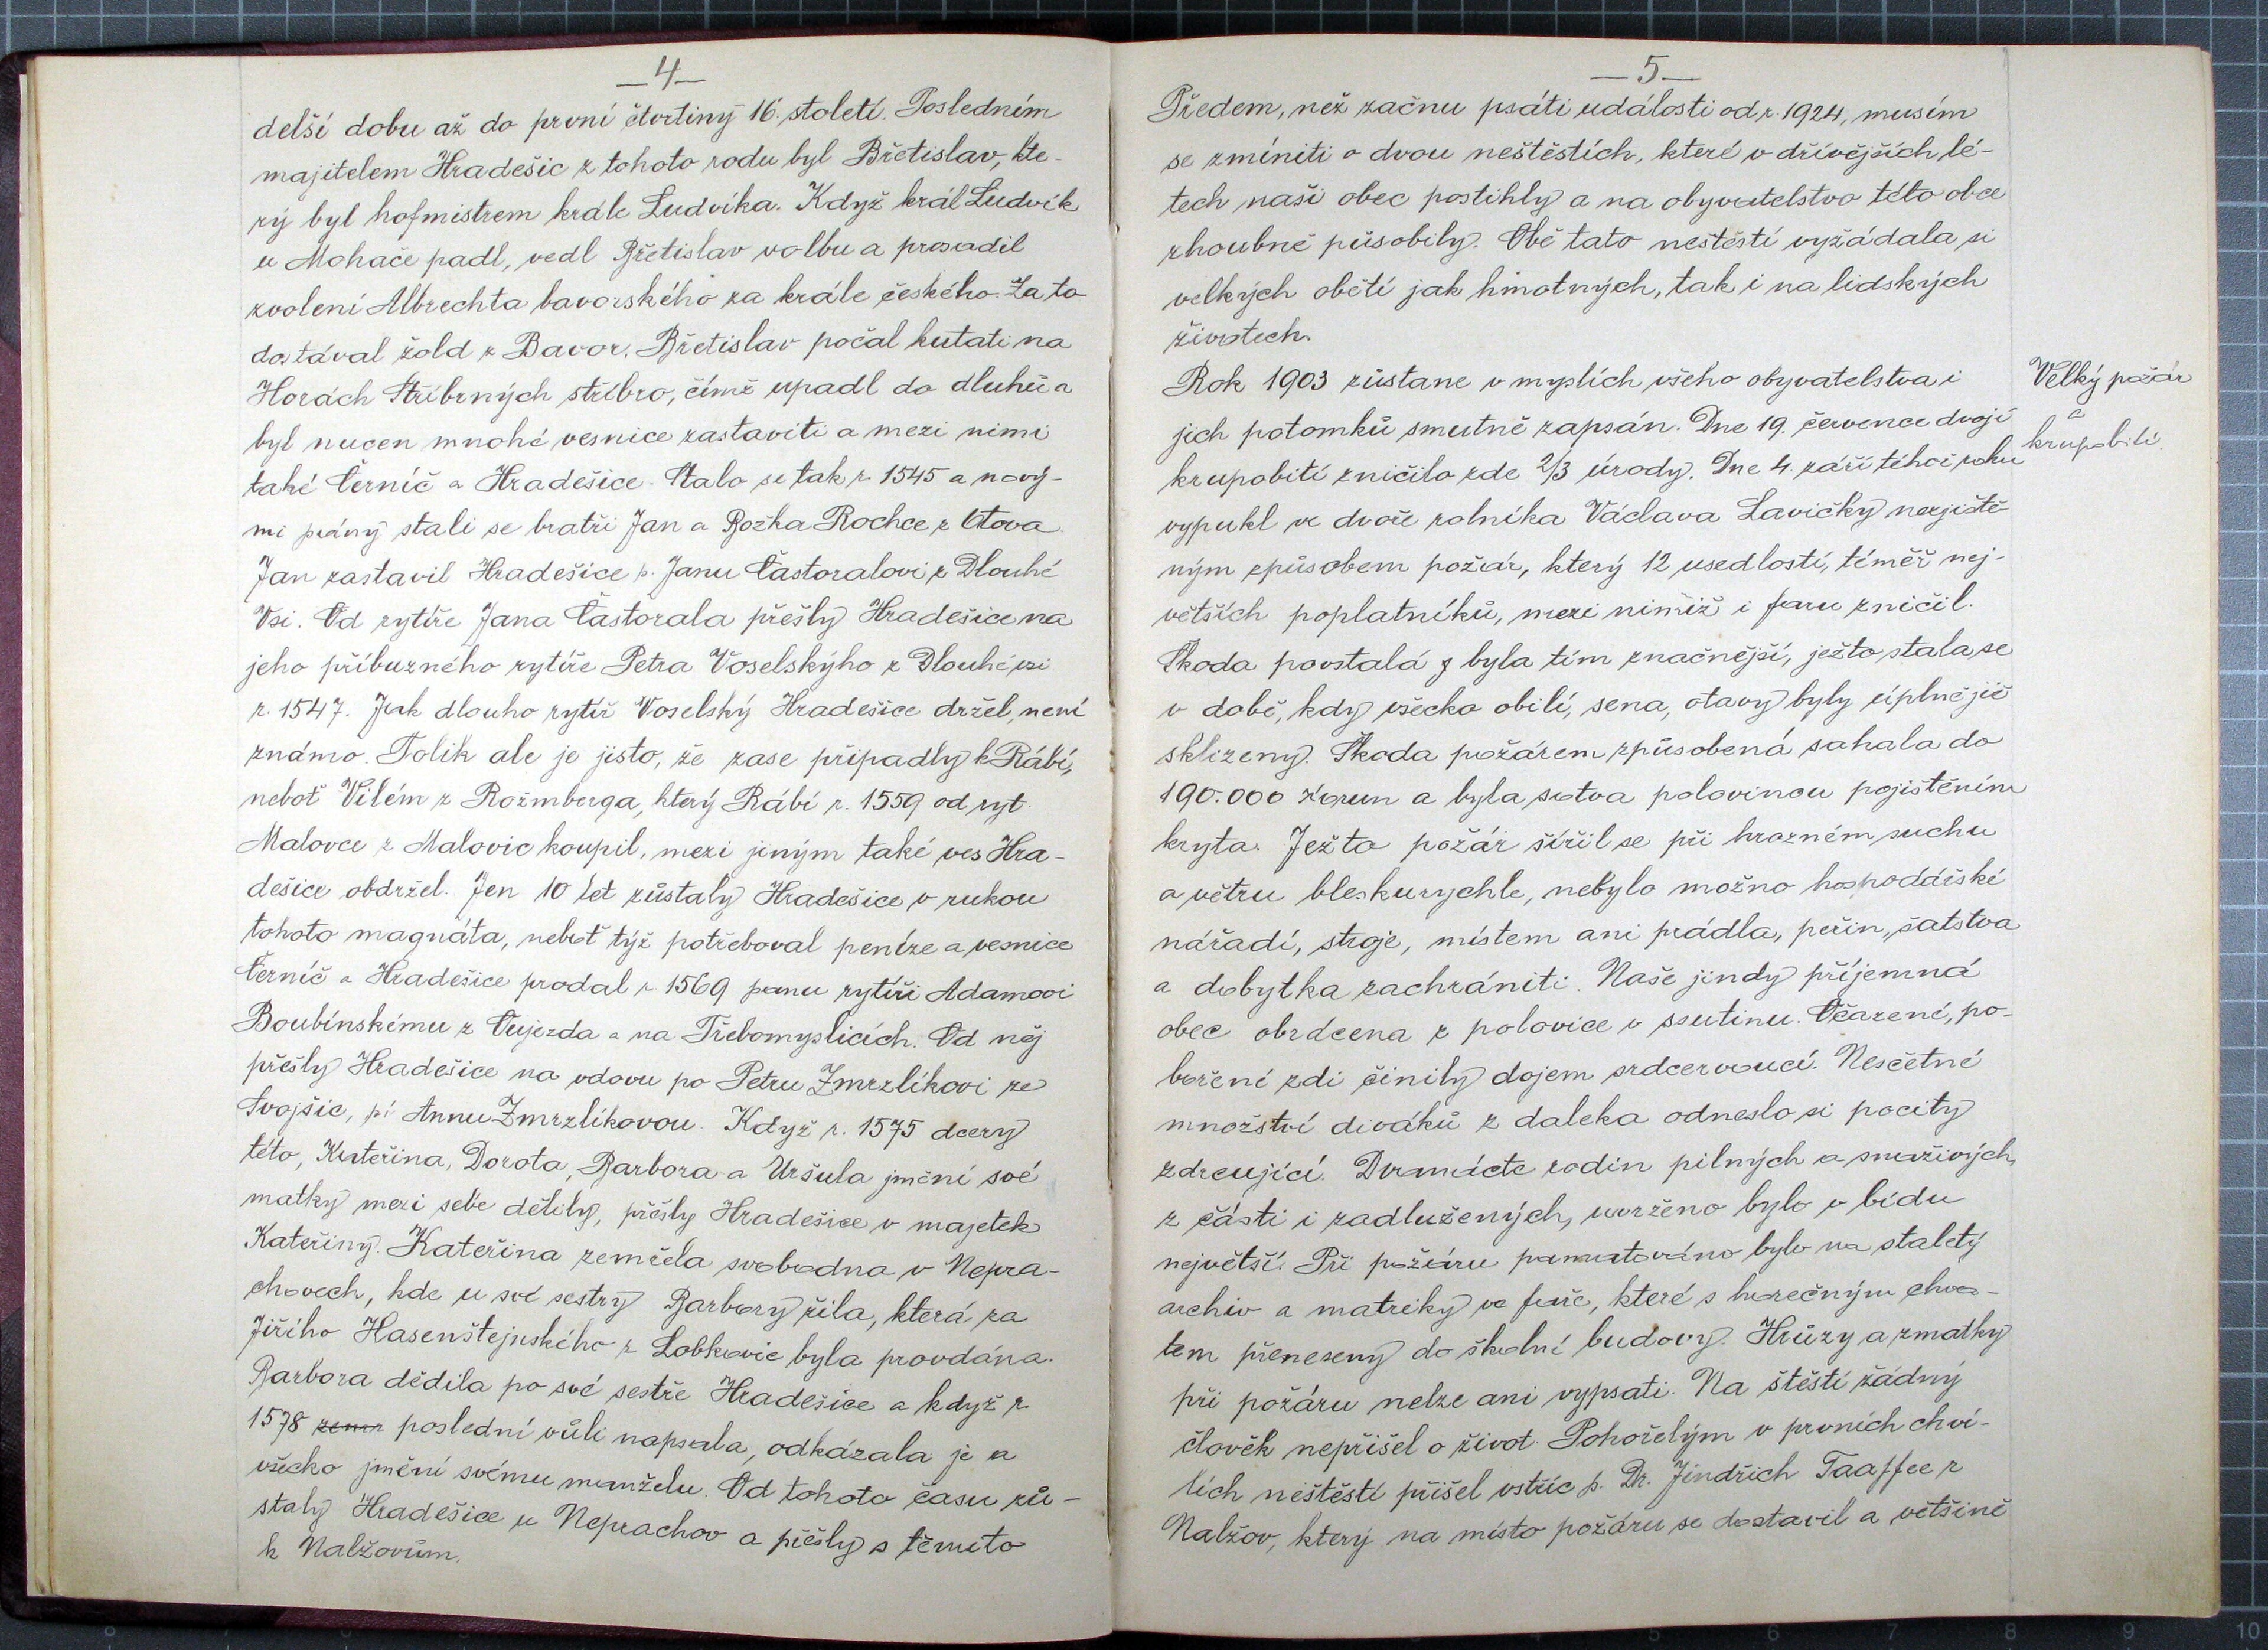 —4—
delší dobu až do první čtvrtiny 16. století. Posledním
majitelem Hradešic z tohoto rodu byl Břetislav, kte-
rý byl hofmistrem krále Ludvíka. Když král Ludvík
u Mohače padl, vedl Břetislav volbu a prosadil
zvolení Albrechta bavorského za krále českého. Za to
dostával žold z Bavor. Břetislav počal kutati na
Horách Stříbrných stříbro, čímž upadl do dluhů a
byl nucen mnohé vesnice zastaviti a mezi nimi
také Černíč a Hradešice. Stalo se tak r. 1545 a nový-
mi pány stali se bratři Jan a Rožka Rochce z Otova
Jan zastavil Hradešice p. Janu Častoralovi z Dlouhé
Vsi. Od rytíře Jana Častorala přešly Hradešice na
jeho příbuzného rytíře Petra Voselskýho z Dlouhé vsi
r. 1547. Jak dlouho rytíř Voselský Hradešice držel, není
známo. Tolik ale je jisto, že zase připadly k Rábí,
neboť Vilém z Rožmberga, který Rábí r. 1559 od ryt.
Malovce z Malovic koupil, mezi jiným také ves Hra-
dešice obdržel. Jen 10 let zůstaly Hradešice v rukou
tohoto magnáta, neboť týž potřeboval peníze a vesnice
Černíč a Hradešice prodal r. 1569 panu rytíři Adamovi
Boubínskému z Oujezda a na Třebomyslicích. Od něj
přešly Hradešice na vdovu po Petru Zmrzlíkovi ze
Svojšic, pí Annu Zmrzlíkovou. Když r. 1575 dcery
této, Kateřina, Dorota, Barbora a Uršula jmění své
matky mezi sebe dělily, přešly Hradešice v majetek
Kateřiny. Kateřina zemřela svobodna v Nepra-
chovech, kde u své sestry Barbory žila, která za
Jiřího Hasenštejnského z Lobkovic byla provdána.
Barbora dědila po své sestře Hradešice a když r.
1578 zemř poslední vůli napsala, odkázala je a
všecko jmění svému manželu. Od tohoto času zů-
staly Hradešice u Neprachov a přešly s těmito
k Nalžovům.
—5—
Předem, než začnu psáti události od r. 1924, musím
se zmíniti o dvou neštěstích, které v dřívějších lé-
tech naši obec postihly a na obyvatelstvo této obce
zhoubně působily. Obě tato neštěstí vyžádala si
velkých obětí jak hmotných, tak i na lidských
životech.
Rok 1903 zůstane v myslích všeho obyvatelstva i
jich potomků smutně zapsán. Dne 19. července dvojí
krupobití zničilo zde 2/3 úrody. Dne 4. září téhož roku
vypukl ve dvoře rolníka Václava Lavičky nezjiště-
ným způsobem požár, který 12 usedlostí, téměř nej-
větších poplatníků, mezi nimiž i faru zničil.
Škoda povstalá byla tím značnější, ježto stala se
v době, kdy všecko obilí, sena, otavy byly úplně již
sklizeny. Škoda požárem způsobená sahala do
190.000 korun a byla sotva polovinou pojištěním
kryta. Ježto požár šířil se při hrozném suchu
a větru bleskurychle, nebylo možno hospodářské
nářadí, stroje, místem ani prádla, peřin, šatstva
a dobytka zachrániti. Naše jindy příjemná
obec obrácena z polovice v ssutinu. Očazené, po-
bořené zdi činily dojem srdcervoucí. Nesčetné
množství diváků z daleka odneslo si pocity
zdrcující. Dvanácte rodin pilných a snaživých,
z části i zadlužených, uvrženo bylo v bídu
největší. Při požáru pamatováno bylo na staletý
archiv a matriky ve faře, které s horečným chva-
tem přeneseny do školní budovy. Hrůzy a zmatky
při požáru nelze ani vypsati. Na štěstí žádný
člověk nepřišel o život. Pohořelým v prvních chví-
lích neštěstí přišel vstříc p. Dr. Jindřich Taaffee z
Nalžov, který na místo požáru se dostavil a většině
Velký požár
a
krupobití